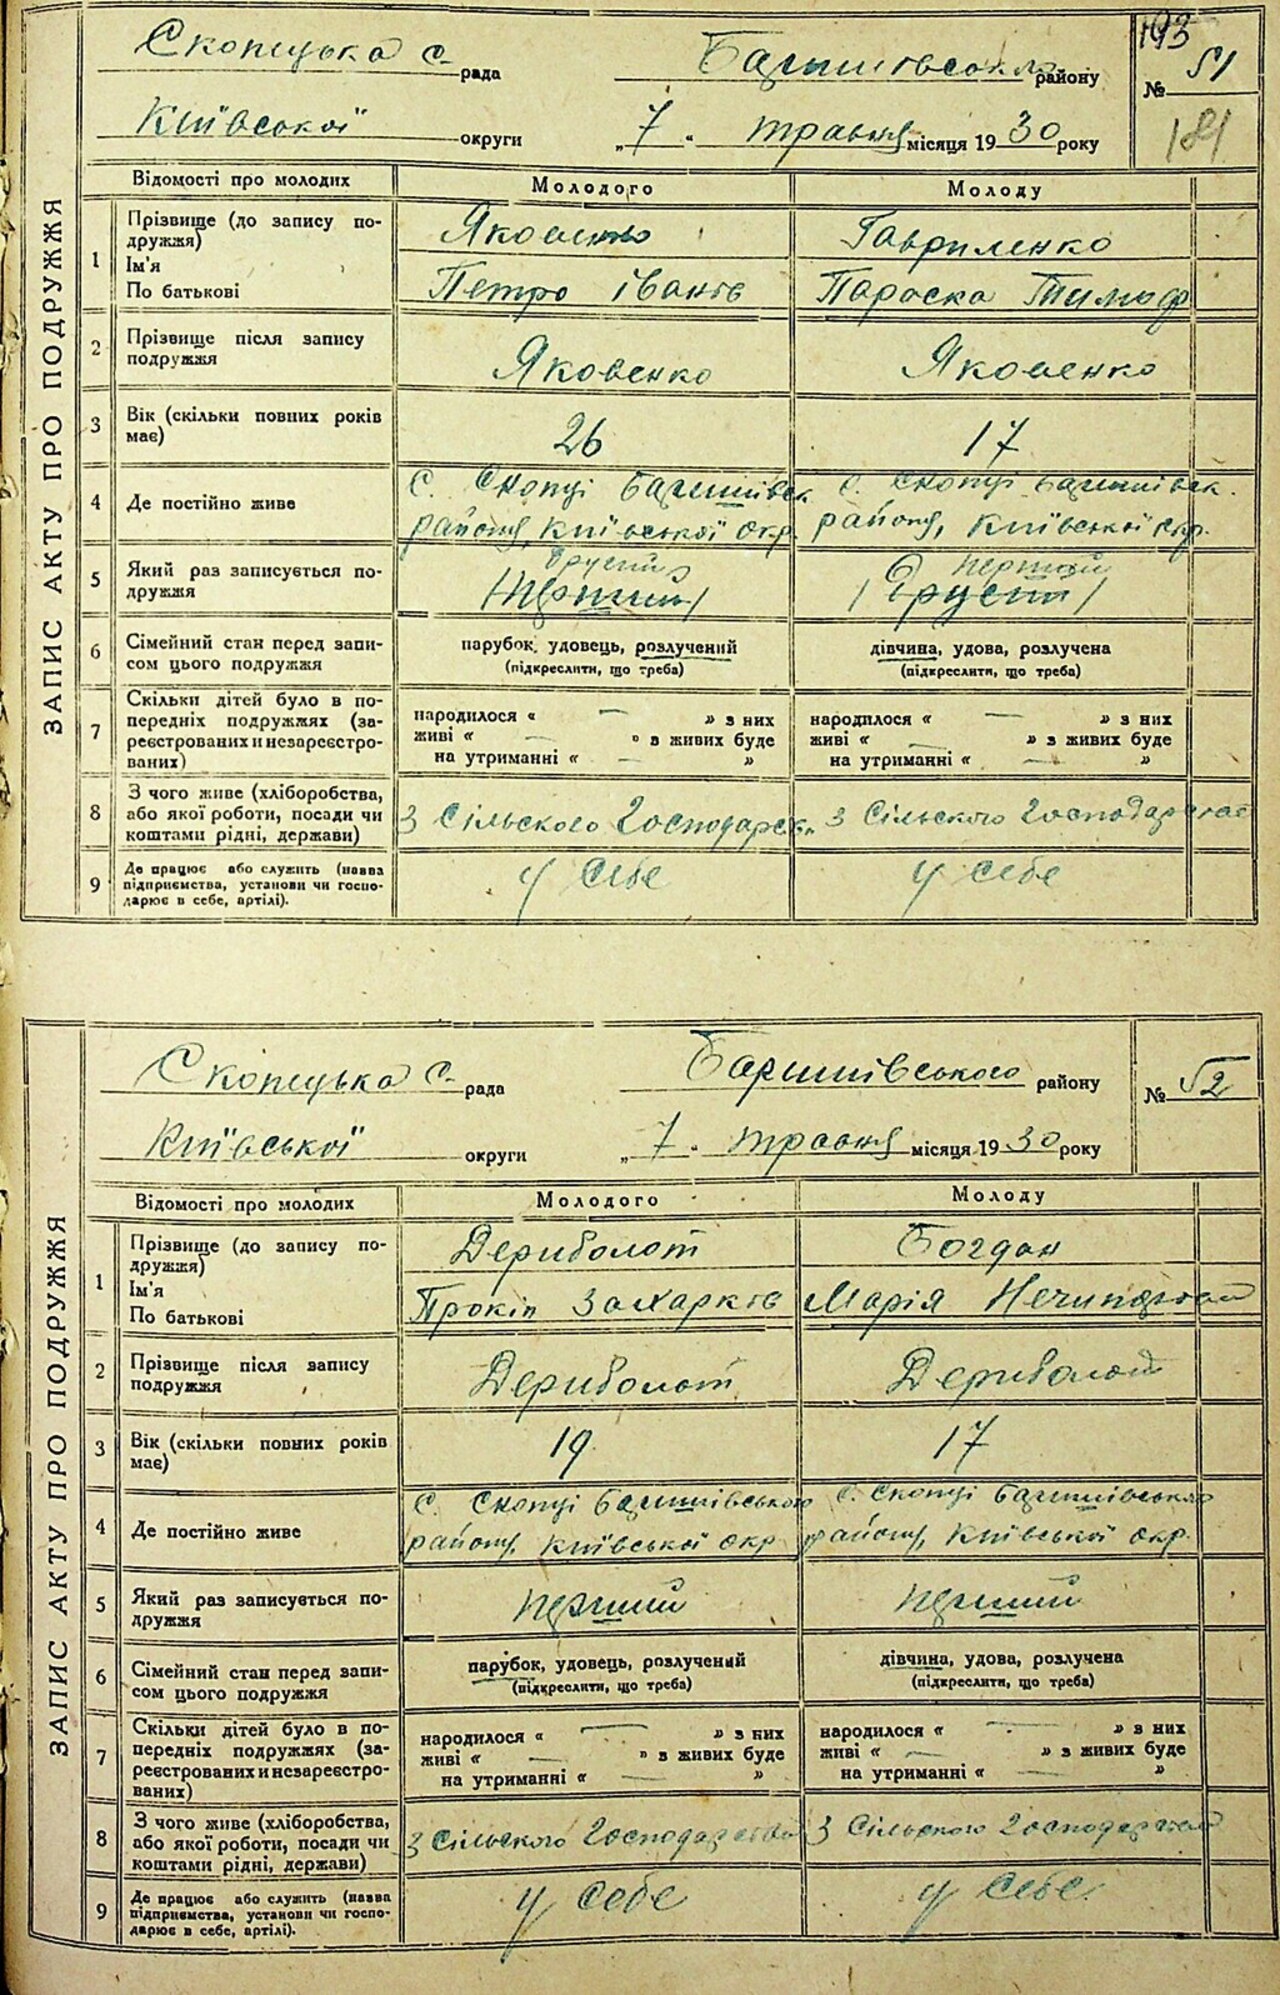 193
Скопецька с. рада Баришівського району № 51
Київської округи „ 7 “ травня місяця 19 30 року 181
ЗАПИС АКТУ ПРО ПОДРУЖЖЯ
Відомості про молодих Молодого Молоду
1 Прізвище (до запису по-
дружжя) Яковенко Гавриленко
Ім'я
По батькові Петро Іванів Параска Тимоф
2 Прізвище після запису
подружжя Яковенко Яковенко
3 Вік (скільки повних років
має) 26 17
4 Де постійно живе с. Скопці Баришівськ с. Скопці Баришівськ.
району, Київської окр. району, Київської окр.
5 Який раз записується по- другий перший
дружжя /перший/ /другий/
6 Сімейний стан перед запи- парубок, удовець, розлучений дівчина, удова, розлучена
сом цього подружжя (підкреслити, що треба) (підкреслити, що треба)
7 Скільки дітей було в по-
передніх подружжях (за- народилося « — » з них народилося « — » з них
реєстрованих и незареєстро- живі « — » з живих буде живі « — » з живих буде
ваних) на утриманні « — » на утриманні « — »
8 З чого живе (хліборобства,
або якої роботи, посади чи З Сільского Господарськ. З Сільского Господарства
коштами рідні, держави)
9 Де працює або служить (назва
підприємства, установи чи госпо- у себе у себе
дарює в себе, артілі).
Скопецька с. рада Баришівського району № 52
Київської округи „ 7 “ травня місяця 19 30 року
ЗАПИС АКТУ ПРО ПОДРУЖЖЯ
Відомості про молодих Молодого Молоду
1 Прізвище (до запису по-
дружжя) Дериболот Богдан
Ім'я
По батькові Прокіп Захарків Марія
2 Прізвище після запису
подружжя Дериболот Дериболот
3 Вік (скільки повних років
має) 19 17
4 Де постійно живе с. Скопці Баришівського с. Скопці Баришівського
району, Київської окр району, Київської окр.
5 Який раз записується по-
дружжя перший перший
6 Сімейний стан перед запи- парубок, удовець, розлучений дівчина, удова, розлучена
сом цього подружжя (підкреслити, що треба) (підкреслити, що треба)
7 Скільки дітей було в по-
передніх подружжях (за- народилося « — » з них народилося « — » з них
реєстрованих и незареєстро- живі « — » з живих буде живі « — » з живих буде
ваних) на утриманні « — » на утриманні « — »
8 З чого живе (хліборобства,
або якої роботи, посади чи З Сільского Господарства З Сільского Господарства
коштами рідні, держави)
9 Де працює або служить (назва
підприємства, установи чи госпо- у себе у себе
дарює в себе, артілі).